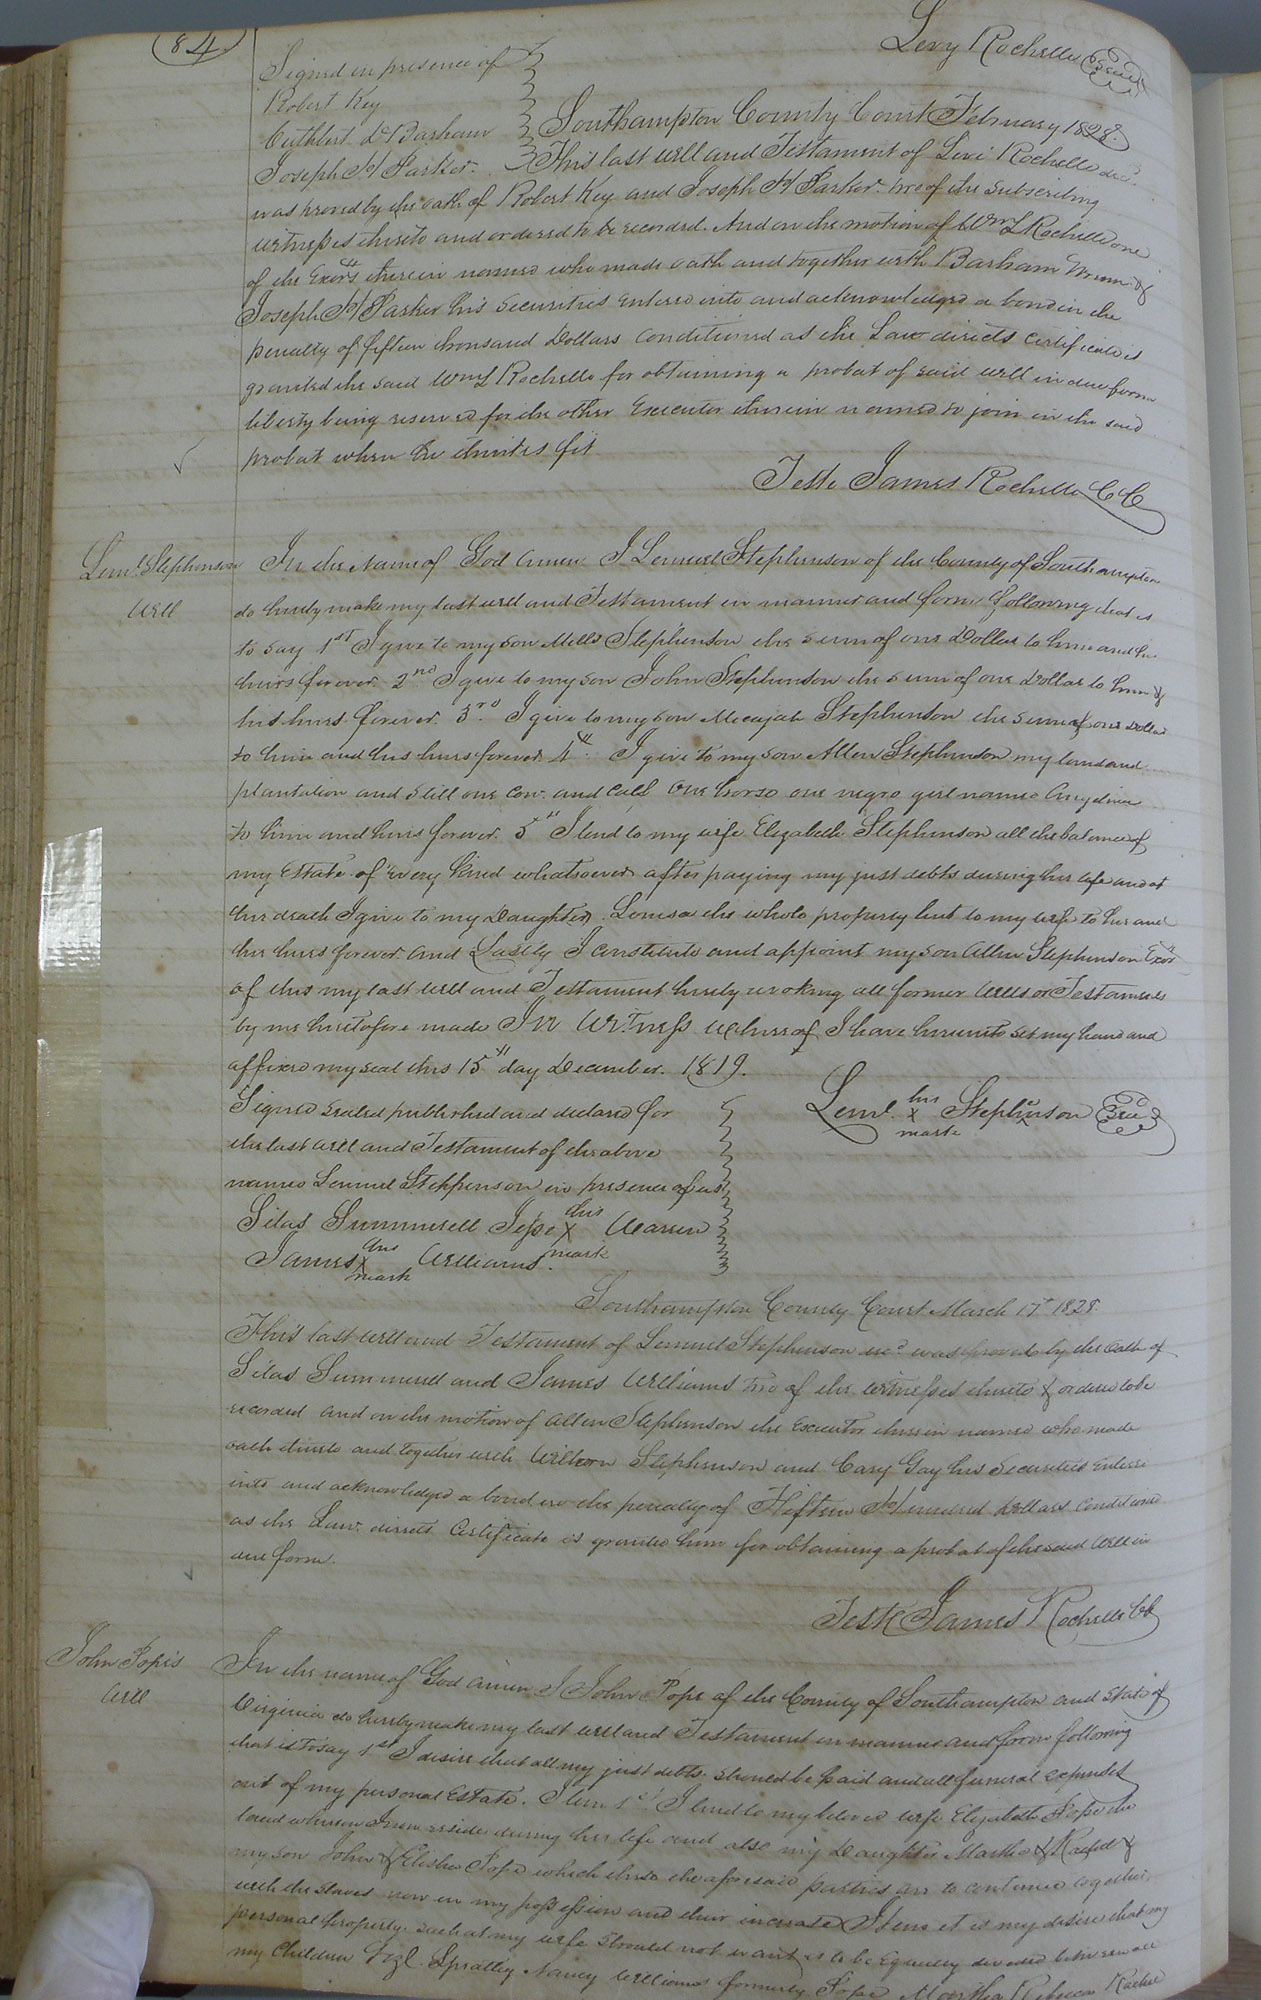 84
Levy Rochelle Seal
Signed in presence of
Robert Key
Cuthbert D Barham
Joseph H Parker
Southampton County Court February 1828.
This last will and Testament of Levi Rochelle decd.
was proved by the oath of Robert Key and Joseph H Parker two of the subscribing
witnesses thereto and ordered to be recorded. And on the motion of Wm L Rochelle one
of the Exors therein named who made oath and together with Barham &
Joseph H Parker his securities entered into and acknowledged a bond in the
penalty of fifteen thousand Dollars conditioned as the Law directs certificate is
granted the said Wm L Rochelle for obtaining a probat of said will in due form
liberty being reserved for the other Executor therein named to join in the said
probat when he thinks fit
Teste James Rochelle CC
Leml. Stephenson
Will
In the Name of God Amen I Lemuel Stephenson of the County of Southampton
do hereby make my last will and Testament in manner and form following that is
to say 1st I give to my son Mills Stephenson the sum of one Dollar to him and his
heirs forever. 2nd I give to my son John Stephenson the sum of one Dollar to him &
his heirs forever. 3rd. I give to my son Micajah Stephenson the sum of one Dollar
to him and his heirs forever 4th. I give to my son Allen Stephenson my land and
plantation and still one cow and calf one horse one negro girl named
to him and heirs forever. 5th I lend to my wife Elizabeth Stephenson all the balance of
my Estate of every kind whatsoever after paying my just debts during her life and at
her death I give to my Daughter Louisa the whole property lent to my wife to her and
her heirs forever and Lastly I constitute and appoint my son Allen Stephenson Exor
of this my last will and Testament hereby revoking all former Wills or Testaments
by me heretofore made In Witness whereof I have hereunto set my hand and
affixed my seal this 15th day December. 1819.
Leml. his x mark Stephenson Seal
Signed sealed published and declared for
the last will and Testament of the above
named Lemuel Stephenson in presence of us
Silas Summerell Jesse his x mark Warren
James his x mark Williams.
Southampton County Court March 17th 1828.
This last will and Testament of Lemuel Stephenson decd. was proved by the oath of
Silas Summerell and James Williams two of the witnesses thereto & ordered to be
recorded and on the motion of Allen Stephenson the Executor therein named who made
oath thereto and together with Stephenson and Cary Gay his Securities entered
into and acknowledged a bond in the penalty of Fifteen Hundred Dollars conditioned
as the Law directs Certificate is granted him for obtaining a probat of the said will in
due form.
Teste James Rochelle CC
John Pope's
Will
In the name of God amen I John Pope of the County of Southampton and State of
Virginia do hereby make my last will and Testament in manner and form following
that is to say 1st I desire that all my just debts should be paid and all funeral expenses
out of my personal Estate. Item 1st I lend to my beloved wife Elizabeth Pope the
land whereon I now reside during her life and also my Daughter Martha & Rachel &
my son John & Elisha Pope which the aforesaid parties are to continue together
with the slaves now in my possession and their increase Item it is my desire that my
personal property such as my wife should not want is to be equally divided between all
my Children Vizl. Spratley Nancy Williams formerly Pope Martha Rebecca Rachel